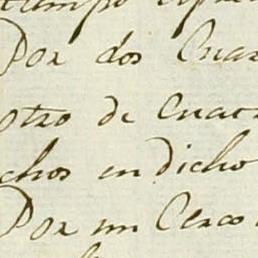 Por dos Cuar
otro de Cuatr
chos en dicho
Por un Cerco